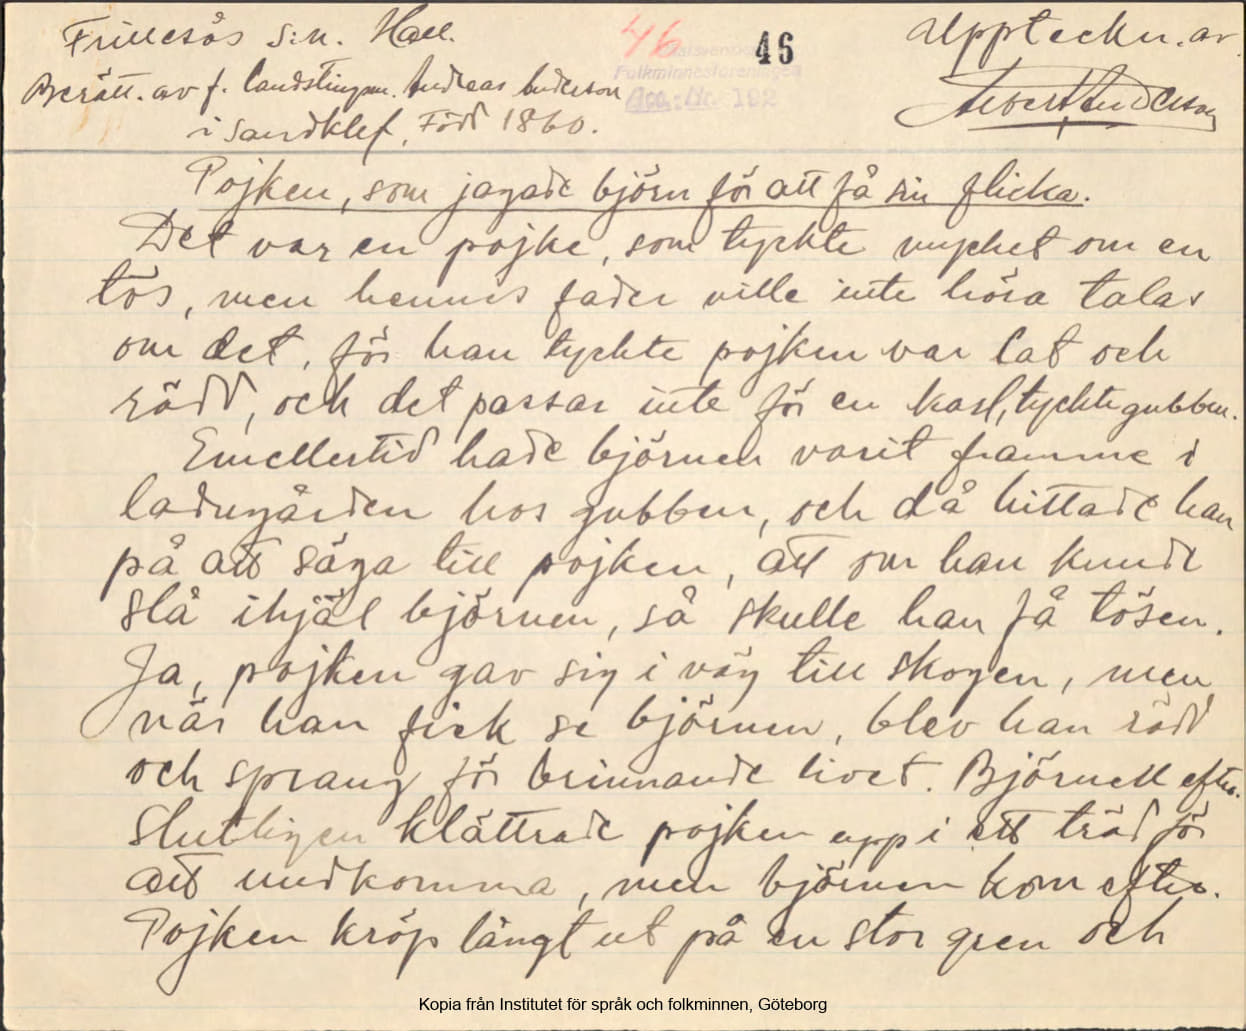 Frillesås s:n. Hall.
46
46
Uppteckn. av
Västsvenska
Folkminnesföreningen
Acc. Nr. 192
Berätt. av f. landstingsm. Andreas Anderson
Albert Anderson
i Sandklef. Född 1860.
Pojken, som jagade björn för att få sin flicka.
Det var en pojke, som tyckte mycket om en
tös, men hennes fader ville inte höra talas
om det, för han tyckte pojken var lat och
rädd, och det passar inte för en karl, tyckte gubben.
Emellertid hade björnen varit framme i
ladugården hos gubben, och då hittade han
på att säga till pojken, att om han kunde
slå ihjäl björnen, så skulle han få tösen.
Ja, pojken gav sig i väg till skogen, men
när han fick se björnen, blev han rädd
och sprang för brinnande livet. Björnen efter.
Slutligen klättrade pojken upp i ett träd för
att undkomma, men björnen kom efter.
Pojken kröp långt ut på en stor gren och
Kopia från Institutet för språk och folkminnen, Göteborg